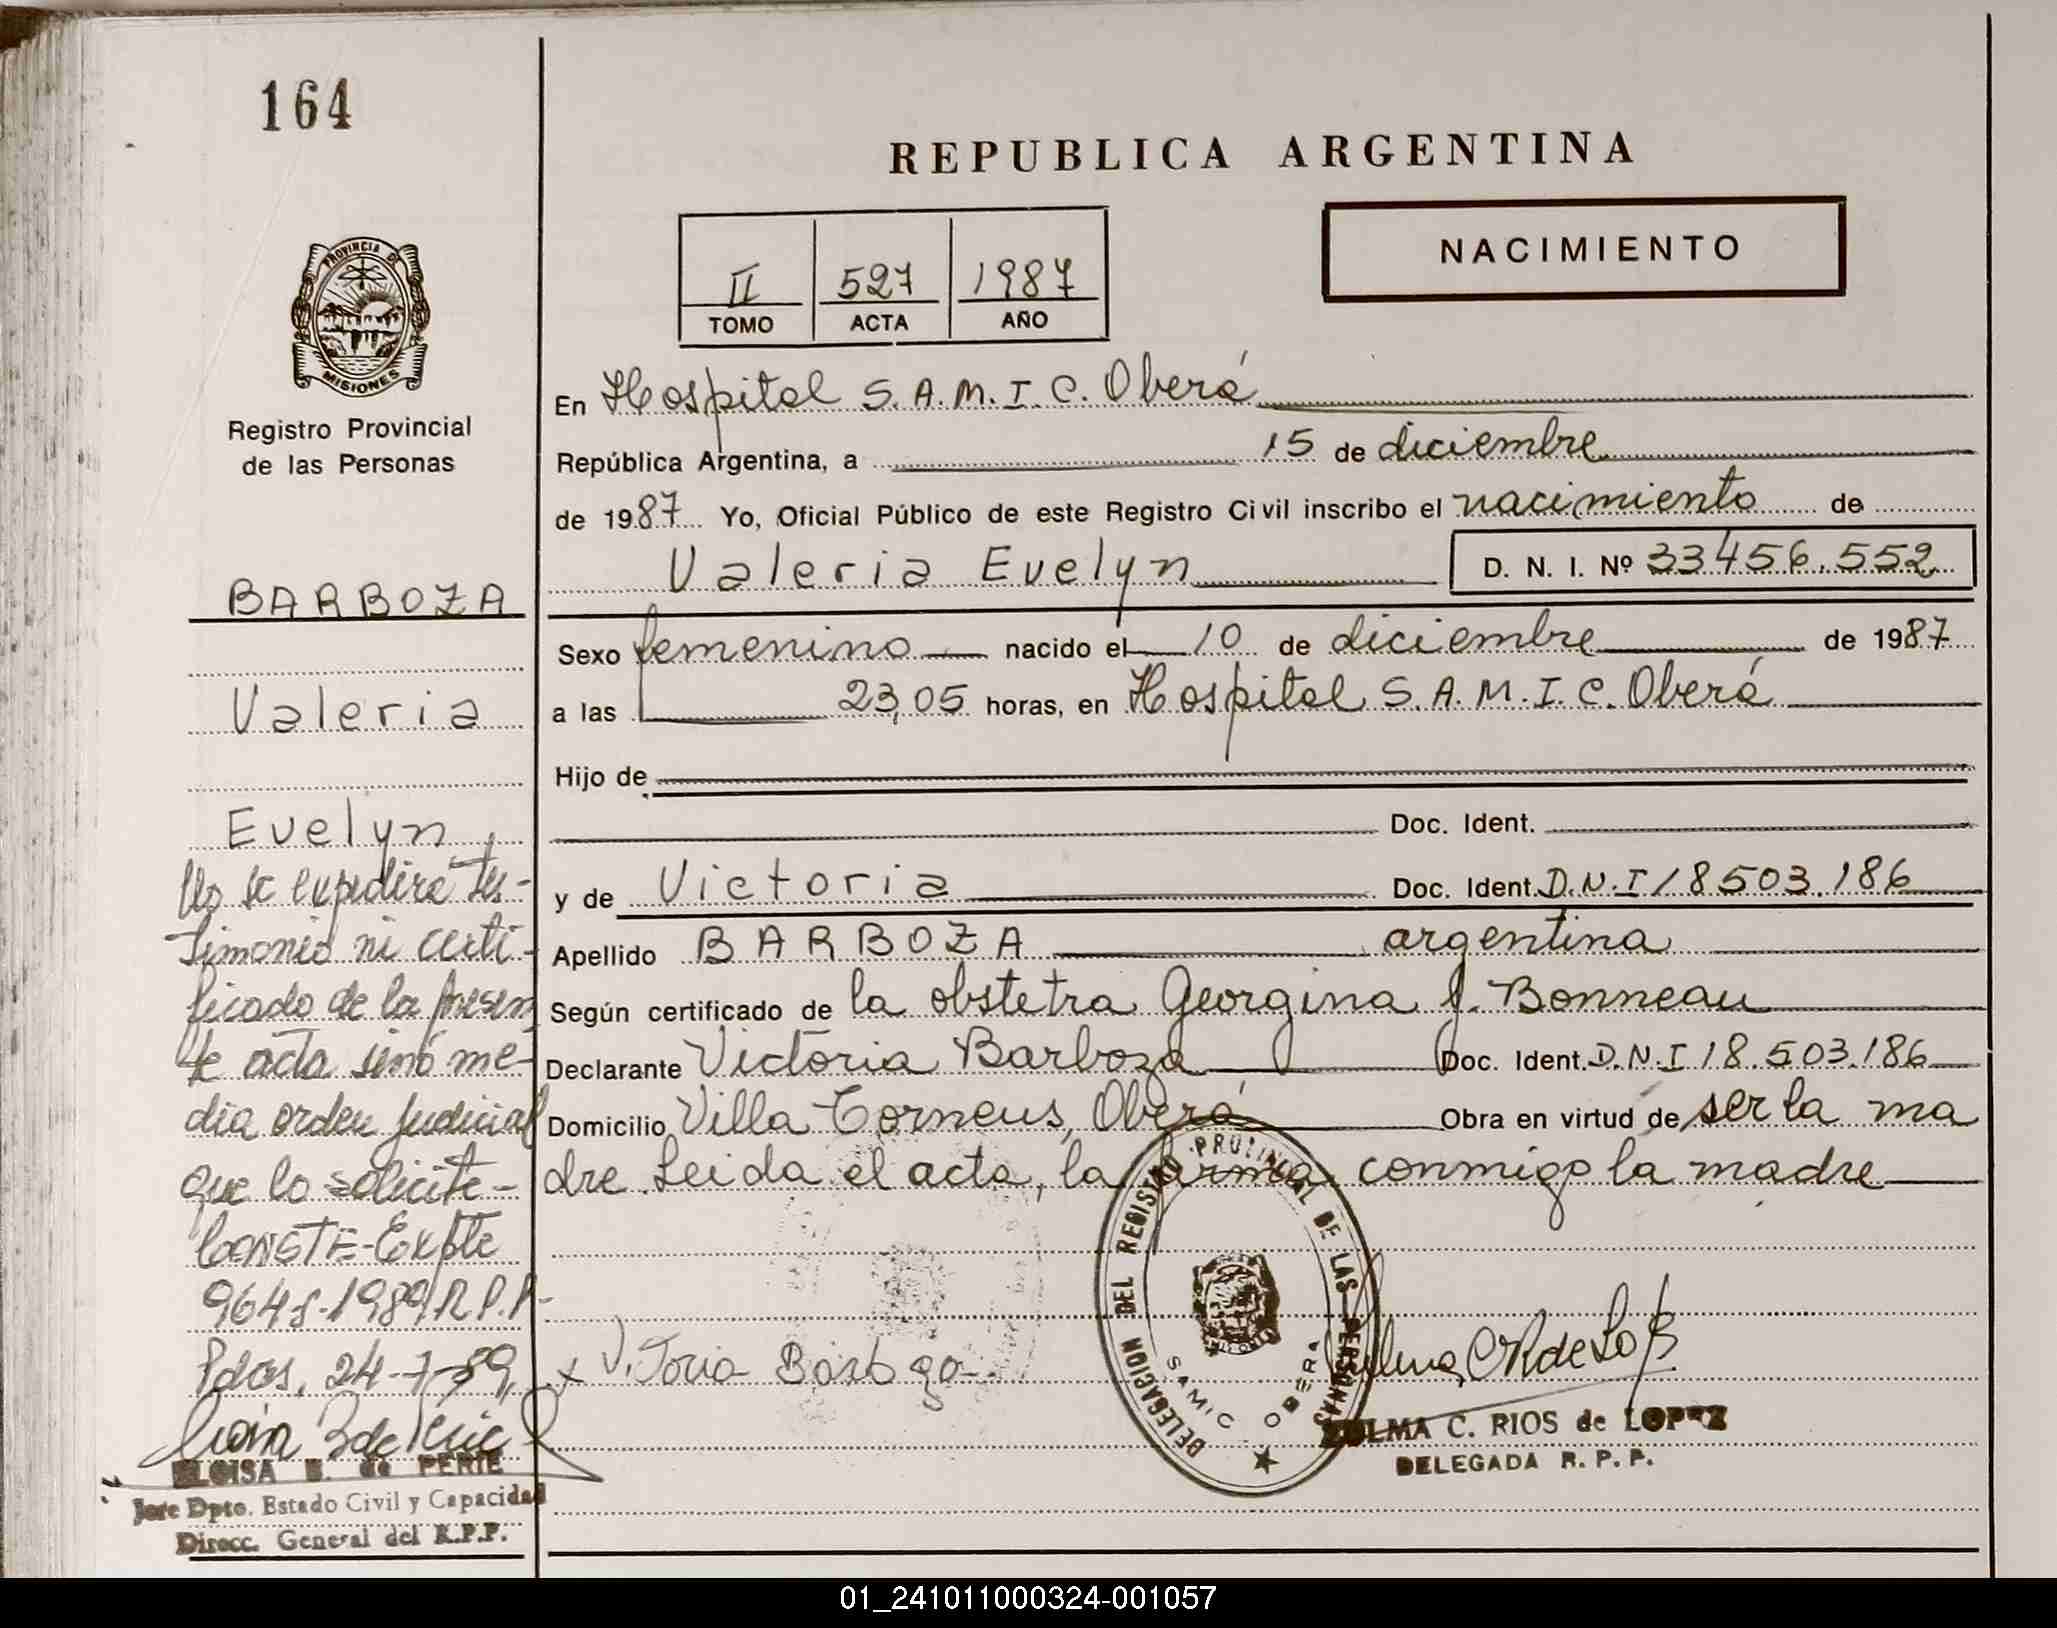 164
REPUBLICA ARGENTINA
NACIMIENTO
II 527 1987
TOMO ACTA AÑO
PROVINCIA DE
MISIONES
Registro Provincial
de las Personas
BARBOZA
Valeria
Evelyn
No se expedirá tes-
timonio ni certi-
ficado de la presen
te acta sinó me-
dia orden judicial
que lo solicite-
CONSTE-Expte
964-1989/R.P.P-
Pdas, 24-7-89,
ELOISA B. de PERIE
Jefe Dpto. Estado Civil y Capacidad
Direcc. General del R.P.P.
En Hospital S.A.M.I.C. Oberá
República Argentina, a 15 de diciembre
de 1987 Yo, Oficial Público de este Registro Civil inscribo el nacimiento de
Valeria Evelyn D. N. I. Nº 33456.552
Sexo femenino nacido el 10 de diciembre de 1987
a las 23,05 horas, en Hospital S.A.M.I.C. Oberá
Hijo de
Doc. Ident.
y de Victoria Doc. Ident. D.N.I 18503.186
Apellido BARBOZA argentina
Según certificado de la obstetra Georgina J. Bonneau
Declarante Victoria Barboza Doc. Ident. D.N.I 18.503.186
Domicilio Villa Torneus, Oberá Obra en virtud de ser la ma
dre. Leida el acta, la firma conmigo la madre
DELEGACION DEL REGISTRO PROVINCIAL DE LAS PERSONAS
SAMIC OBERA
x V.Toria Barboza
ZULMA C. RIOS de LOPEZ
DELEGADA R. P. P.
01_241011000324-001057